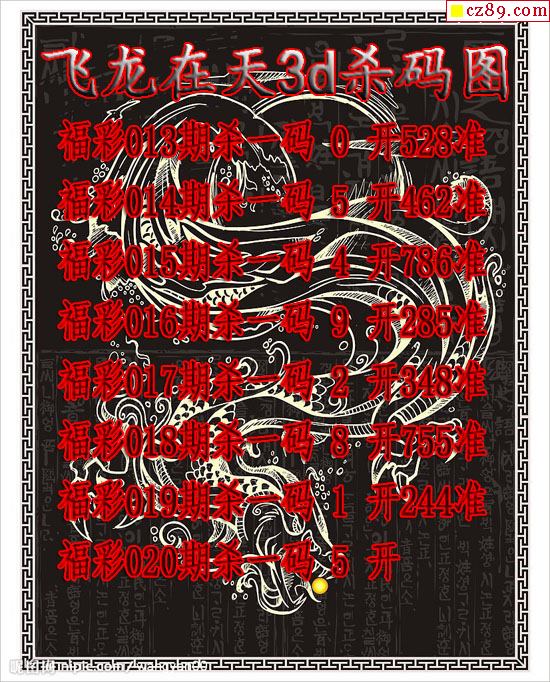 cz89.com
飞龙在天3d杀码图
福彩013期杀一码 0 开528准
福彩014期杀一码 5 开462准
福彩015期杀一码 4 开786准
福彩016期杀一码 9 开285准
福彩017期杀一码 2 开348准
福彩018期杀一码 8 开755准
福彩019期杀一码 1 开244准
福彩020期杀一码 5 开